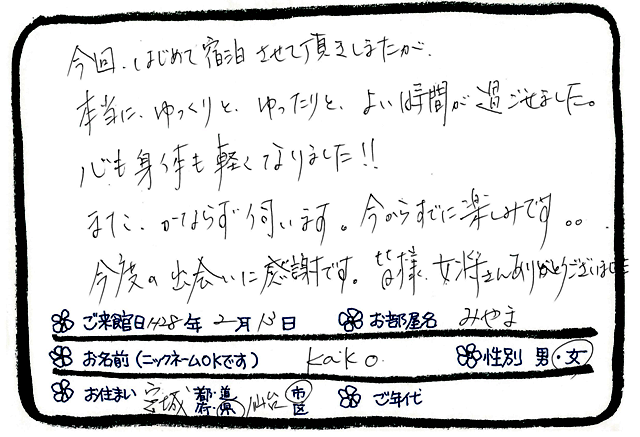 今回、はじめて宿泊させて頂きましたが、
本当に、ゆっくりと、ゆったりと、よい時間が過ごせました。
心も身体も軽くなりました!!
また、かならず伺います。今からすでに楽しみです。。
今度の出会いに感謝です。皆様、女将さんありがとうございました
ご来館日 H28年 2月 13日 お部屋名 みやま
お名前(ニックネームOKです) kaiko. 性別 男・女
お住まい 宮城 都・道・府・県 仙台 市区 ご年代